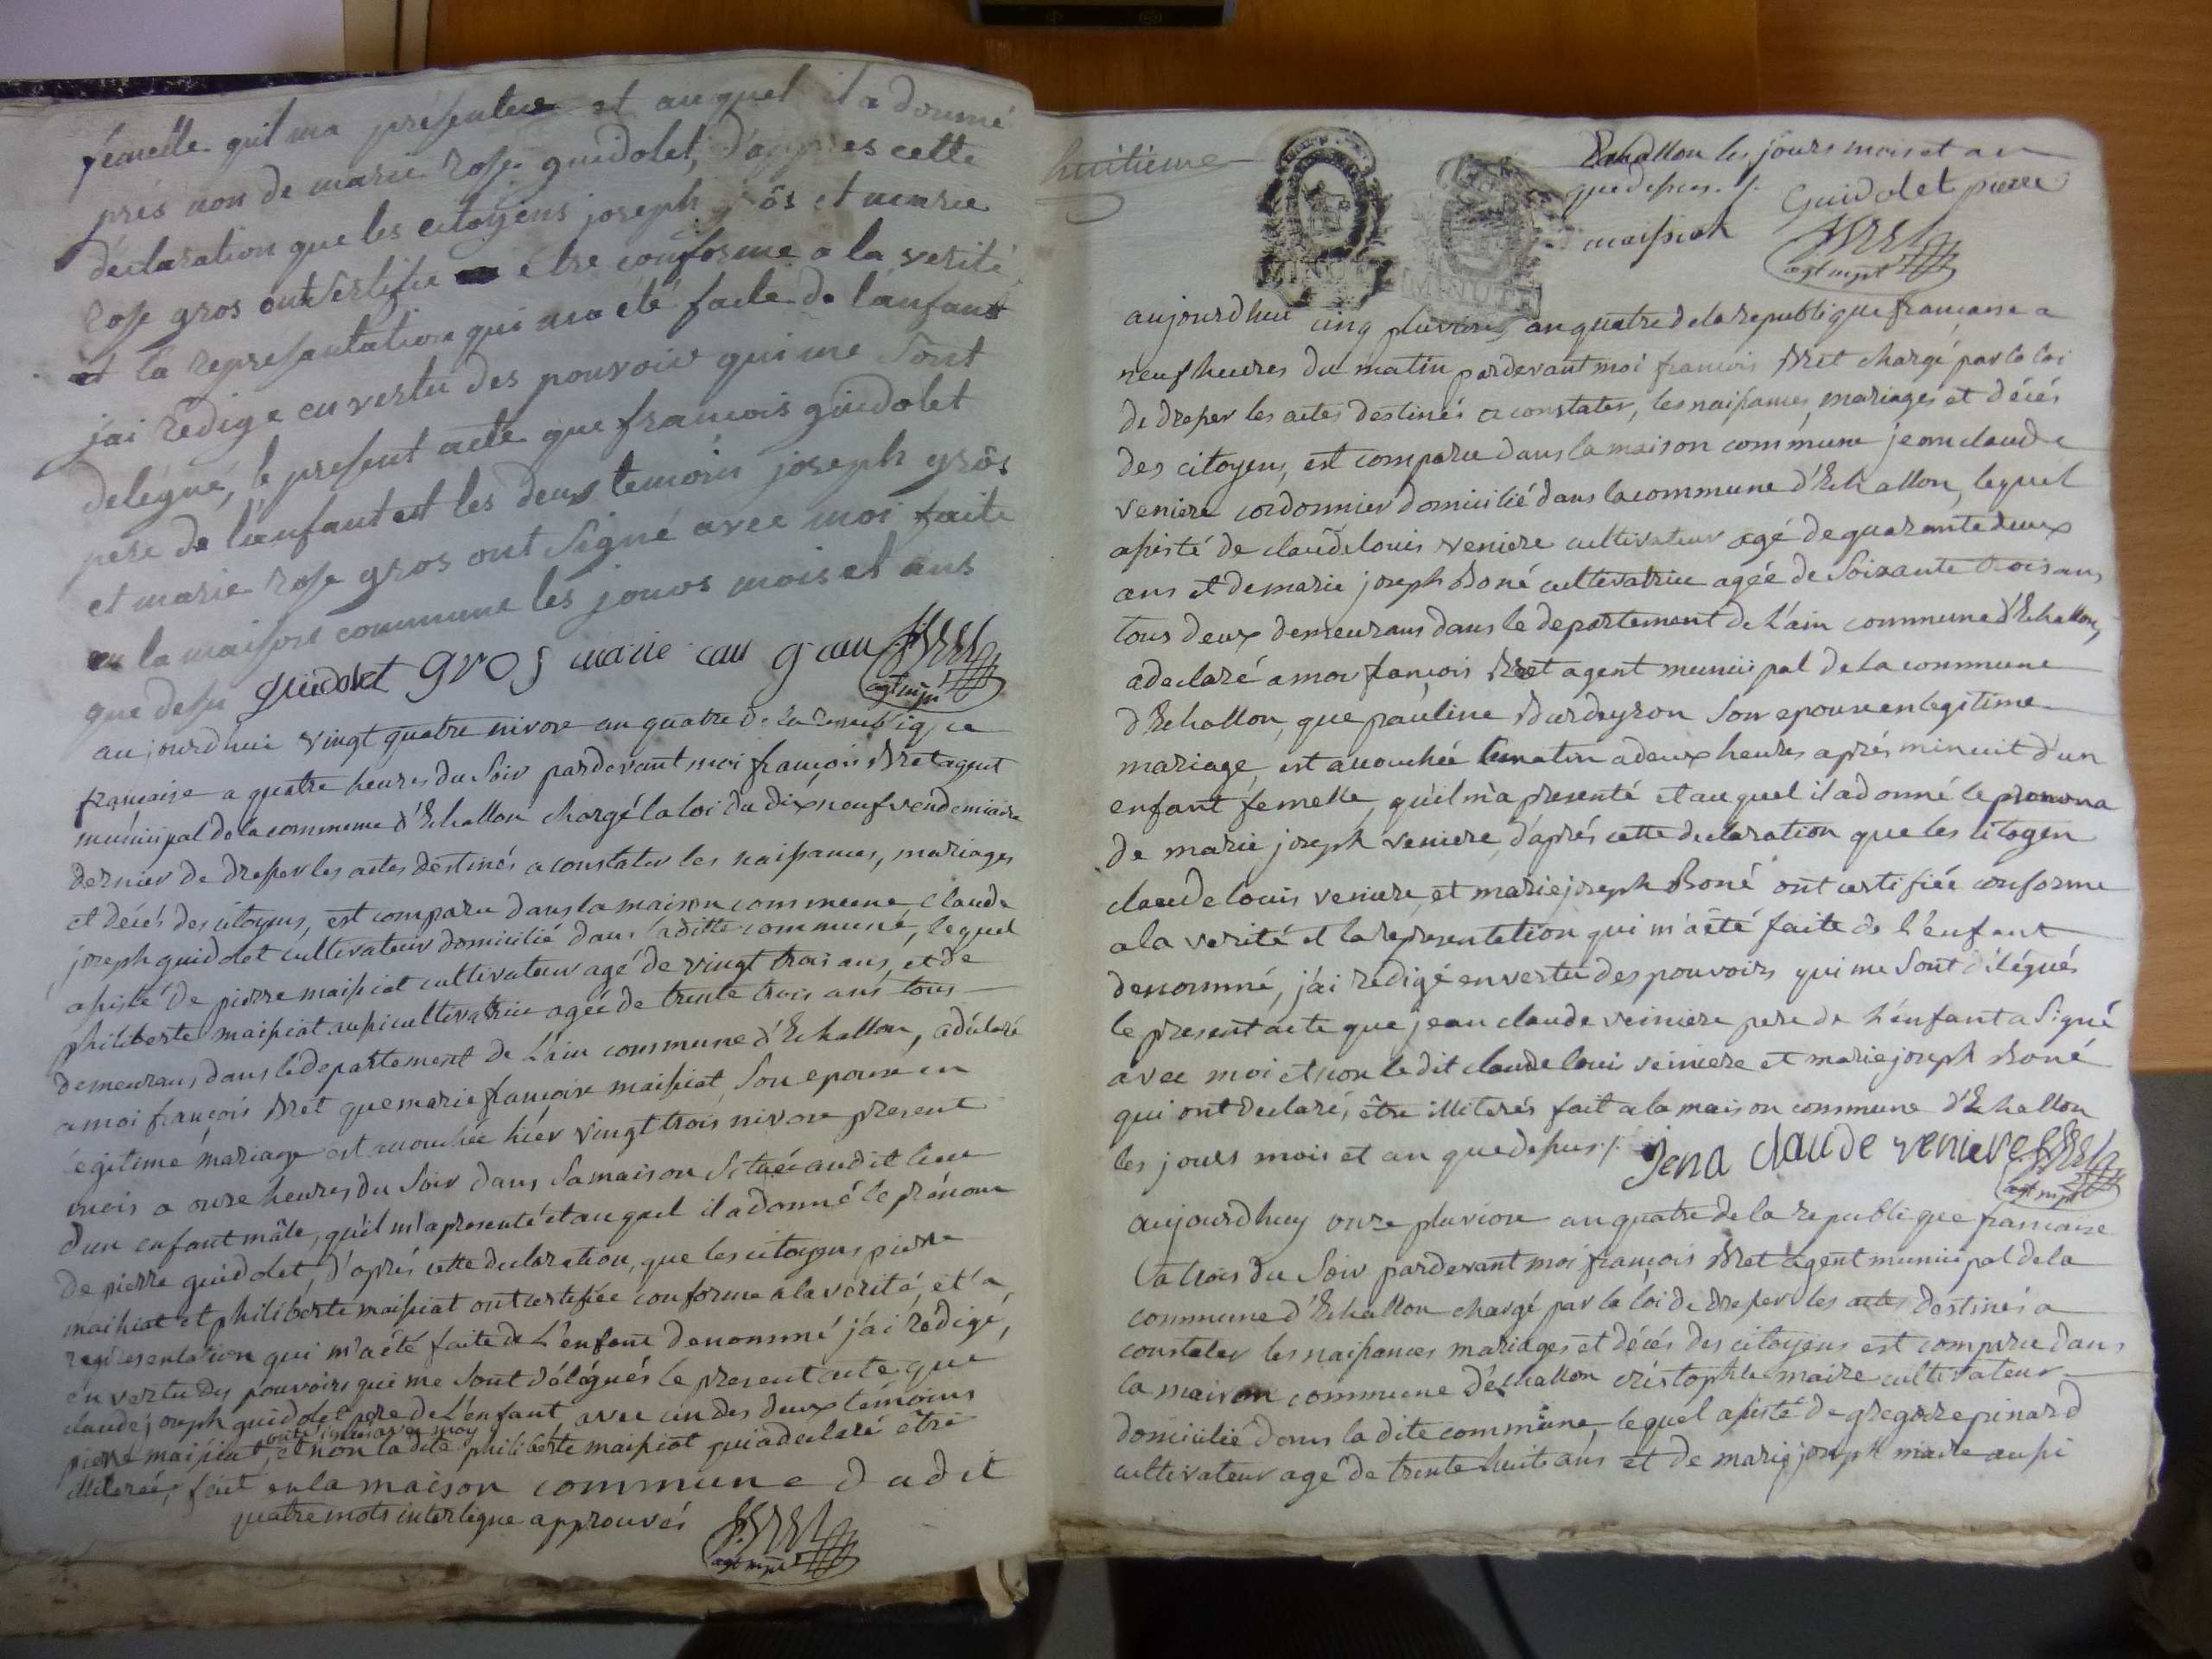 femelle quil ma présentée et auquel il a donné
prés non de marie rose guidolet, d'appres cette
déclaration que les citoyens joseph grôs et marie
rose gros ont sertifie être conforme a la verité
et la representation qui ma été faite de l'anfant
jai redige en vertu des pouvoirs qui me sont
delégué, le present acte que francois guidolet
pere de l'enfant et les deux temoins joseph grôs
et marie rose gros ont signé avec moi faite
en la maison commune les jours mois et ans
que desu guidolet gros marie
agt mpl
aujourdhui vingt quatre nivose an quatre de la republique
francaise a quatre heures du soir pardevant moi françois Bret agent
municipal de la commune d'Echallon chargé la loi du dix neuf vendemiaire
dernier de dresser les actes destinés a constater les naissances, mariages
et décés des citoyens, est comparu dans la maison commune claude
joseph guidolet cultivateur domicilié dans laditte commune, lequel
assisté de pierre maissiat cultivateur agé de vingt trois ans, et de
philiberte maissiat aussi cultivatrice agée de trente trois ans tous
demeurans dans le departement de L'ain commune d'Echallon, a déclaré
a moi françois Bret que marie françoise maissiat, son epouse en
legitime mariage est accouchée hier vingt trois nivose present
mois a onze heures du soir dans sa maison située audit lieu
d'un enfant mâle, qu'il m'a presenté et auquel il a donné le prénom
de pierre guidolet, d'aprés cette declaration, que les citoyens pierre
maissiat et philiberte maissiat ont certifiée conforme a la vérité, et la
representation qui m'a été faite de L'enfant denommé j'ai rédigé,
en vertu des pouvoirs qui me sont délégués le present acte que
claude joseph guidolet pere de L'enfant, avec un des deux témoins
pierre maissiat, et non la dite philiberte maissiat qui a declaré etre
illiterée, fait en la maison commune dudit
quatre mots interligne approuvés
agt mpl
huitieme
MINUTE MINUTE
Echallon les jours mois et an
que dessus ./. Guidolet pierre
maissiat
agt mpl
aujourdhui cinq pluviose an quatre de la republique francaise a
neuf heures du matin pardevant moi francois Bret chargé par la loi
de dresser les actes destinés a constater, les naissances, mariages et décés
des citoyens, est comparu dans la maison commune jean claude
veniere cordonnier domicilié dans la commune d'Echallon, lequel
assisté de claude louis veniere cultivateur agé de quarante deux
ans et de marie joseph Boné cultivatrice agée de soixante trois ans
tous deux demeurans dans le departement de L'ain commune d'Echallon,
a declaré a moi françois Bret agent municipal de la commune
d'Echallon, que pauline Burdeyron son epouse en legitime
mariage, est accouchée ce matin a deux heures aprés minuit d'un
enfant femelle, qu'il m'a presenté et auquel il a donné le prenom
de marie joseph veniere, d'aprés cette declaration que les citoyen
claude louis veniere, et marie joseph Boné ont certifiée conforme
a la verité et la representation qui m'a été faite de L'enfant
denommé, j'ai redigé en vertu des pouvoirs qui me sont délégués
le present acte que jean claude veiniere pere de L'enfant a signé
avec moi et non le dit claude loui veiniere et marie joseph Boné
qui ont declaré, être illiterés fait a la maison commune d'Echallon
les jours mois et an que dessus ./. Jena claude veniere
agt mpl
aujourdhuy onze pluviose an quatre de la republique francaise
a trois du soir pardevant moi françois Bret agent municipal de la
commune d'Echallon chargé par la loi de dresser les actes destinés a
constater les naissances mariages et décés des citoyens est comparu dans
la maison commune d'échallon cristophle maire cultivateur
domicilié dans la dite commune, lequel assisté de gregoire pinard
cultivateur agé de trente huit ans et de marie joseph maire aussi